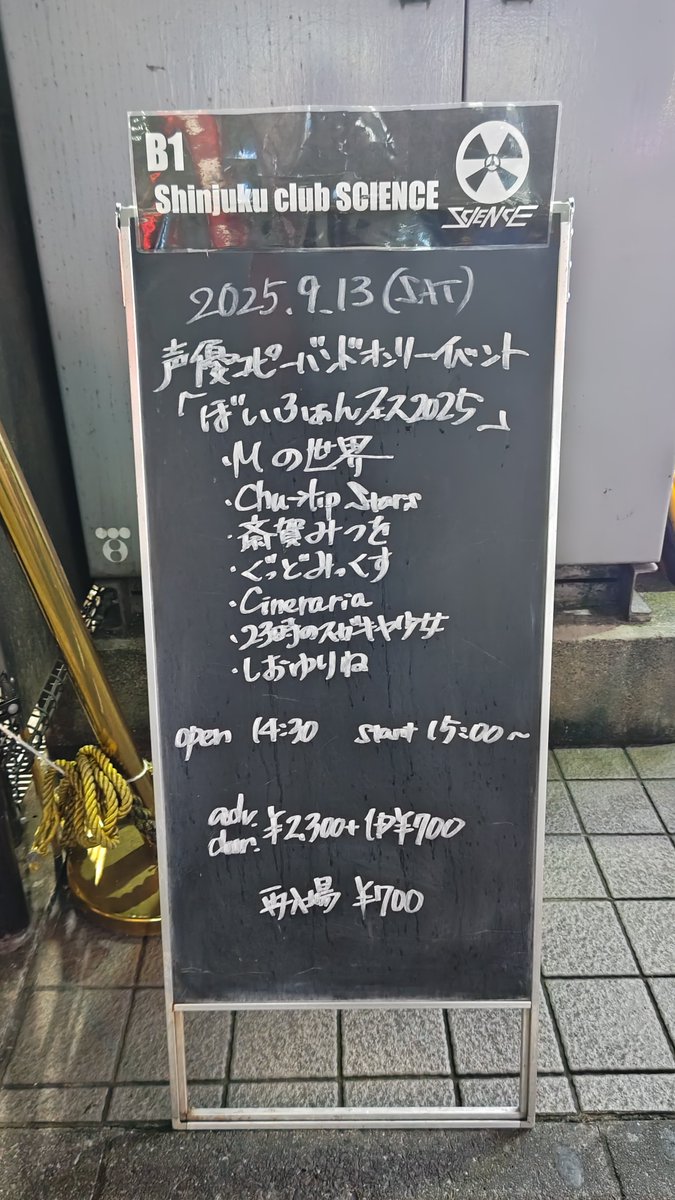 B1
Shinjuku club SCIENCE
SCIENCE
2025.9.13(SAT)
声優コピーバンドオンリーイベント
「ぼいふぁんフェス2025」
・Mの世界
・Chu→lip Stars
・斎賀みつを
・ぐっどみっくす
・Cineraria
・23時のスガキヤ少女
・しおゆりね
open 14:30 start 15:00~
adv.
door. ¥2,300+1D¥700
再入場 ¥700